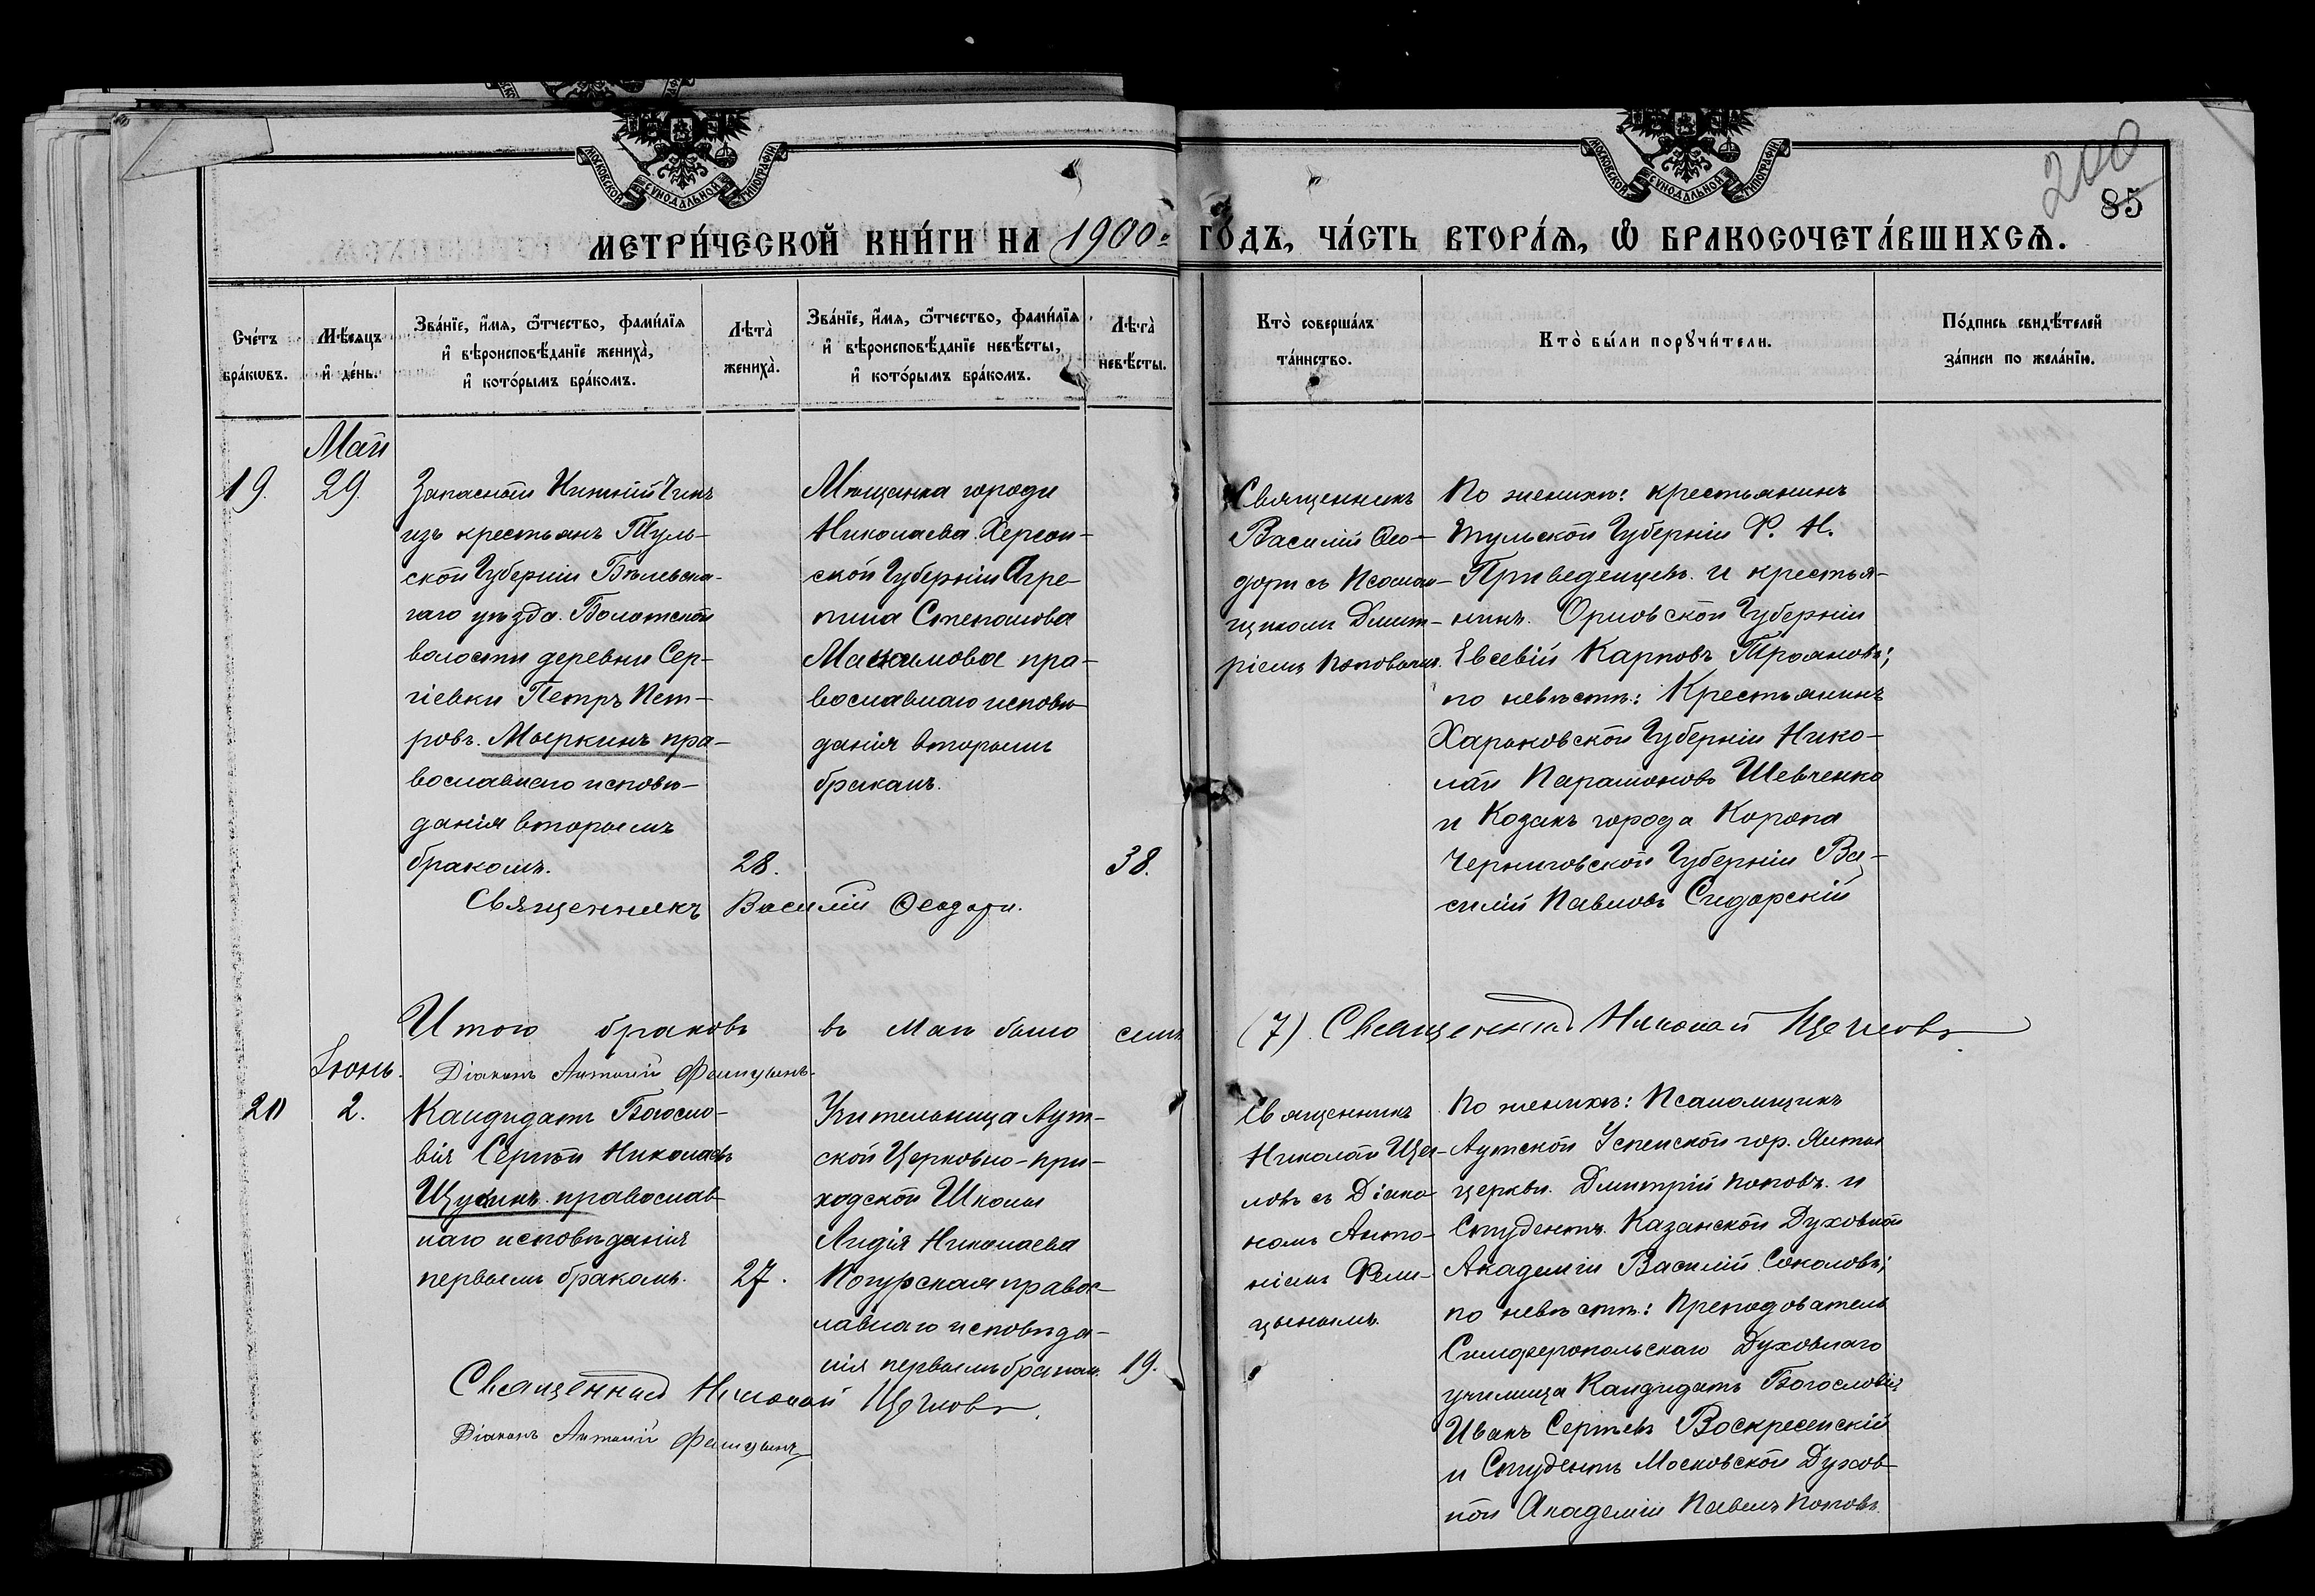 МОСКОВСКОЙ СѴНОДАЛЬНОЙ ТИПОГРАФІИ
МОСКОВСКОЙ СѴНОДАЛЬНОЙ ТИПОГРАФІИ
200
85
МЕТРИ́ЧЕСКОЙ КНИ́ГИ НА 1900. ГО́ДЪ, ЧА́СТЬ ВТОРА́Ѧ, Ѽ БРАКОСОЧЕТА́ВШИХСѦ.
Сче́тъ бра́кѡвъ.
Мѣ́сяцъ и҆ де́нь.
Зва́нїе, и҆́мя, ѻ҆́тчество, фами́лїя
и҆ вѣроисповѣ́данїе жениха̀,
и҆ кото́рымъ бра́комъ.
Лѣта̀ жениха̀.
Зва́нїе, и҆́мя, ѻ҆́тчество, фами́лїя
и҆ вѣроисповѣ́данїе невѣ́сты,
и҆ кото́рымъ бра́комъ.
Лѣта̀ невѣ́сты.
Кто̀ соверша́лъ
та́инство.
Кто̀ бы́ли порꙋчи́тели.
По́дпись свидѣ́телей
за́писи по жела́нїю.
Май
19. 29.
Запасной Нижній Чинъ
изъ крестьянъ Туль-
ской Губерніи Бѣлевска-
гаго уѣзда. Болотской
волости деревни Сер-
гіевки Петръ Пет-
ровъ. Мыркинъ пра-
вославнаго исповѣ-
данія вторымъ
бракомъ.
28.
Мѣщанка города
Николаева Херсон-
ской Губерніи Агре-
пина Степанова
Максимова пра-
вославнаго исповѣ-
данія вторымъ
бракомъ.
38.
Священникъ
Василій Ѳео-
дори съ Псалом-
щикомъ Димит-
ріемъ Поповымъ.
По женихѣ: крестьянинъ
Тульской Губерніи Ф. Н.
Приведенцевъ и крестья-
нинъ. Орловской Губерніи
Евсевій Карповъ Трояновъ;
по невѣстѣ: Крестьянинъ
Харьковской Губерніи Нико-
лай Парамоновъ Шевченко
и Козакъ города Коропа
Черниговской Губерніи Ва-
силій Павловъ Сидорскій
Священникъ Василій Ѳеодори.
Итого браковъ въ Маѣ было семь (7). Священникъ Николай Щегловъ.
Діаконъ Антоній Фелицынъ.
Іюнь.
20 2.
Кандидатъ Богосло-
вія Сергѣй Николаевъ
Щукинъ православ-
наго исповѣданія
первымъ бракомъ.
27.
Учительница Аут-
ской Церковно-при-
ходской Школы
Лидія Николаева
Погурская правос-
лавнаго исповѣда-
нія первымъ браком.
19.
Священникъ
Николай Щег-
ловъ съ Діако-
номъ Анто-
ніемъ Фели-
цынымъ.
По женихѣ: Псаломщикъ
Аутской Успенской гор. Ялты
церкви. Дмитрій Поповъ. и
Студентъ. Казанской Духовной
Академіи Василій Соколовъ;
по невѣстѣ: Преподователь
Симферопольскаго Духовнаго
училища Кандидатъ Богословія
Иванъ Сергѣевъ Воскресенскій
и Студентъ Московской Духов-
ной Академіи Павелъ Поповъ.
Священникъ Николай Щегловъ.
Діаконъ Антоній Фелицынъ